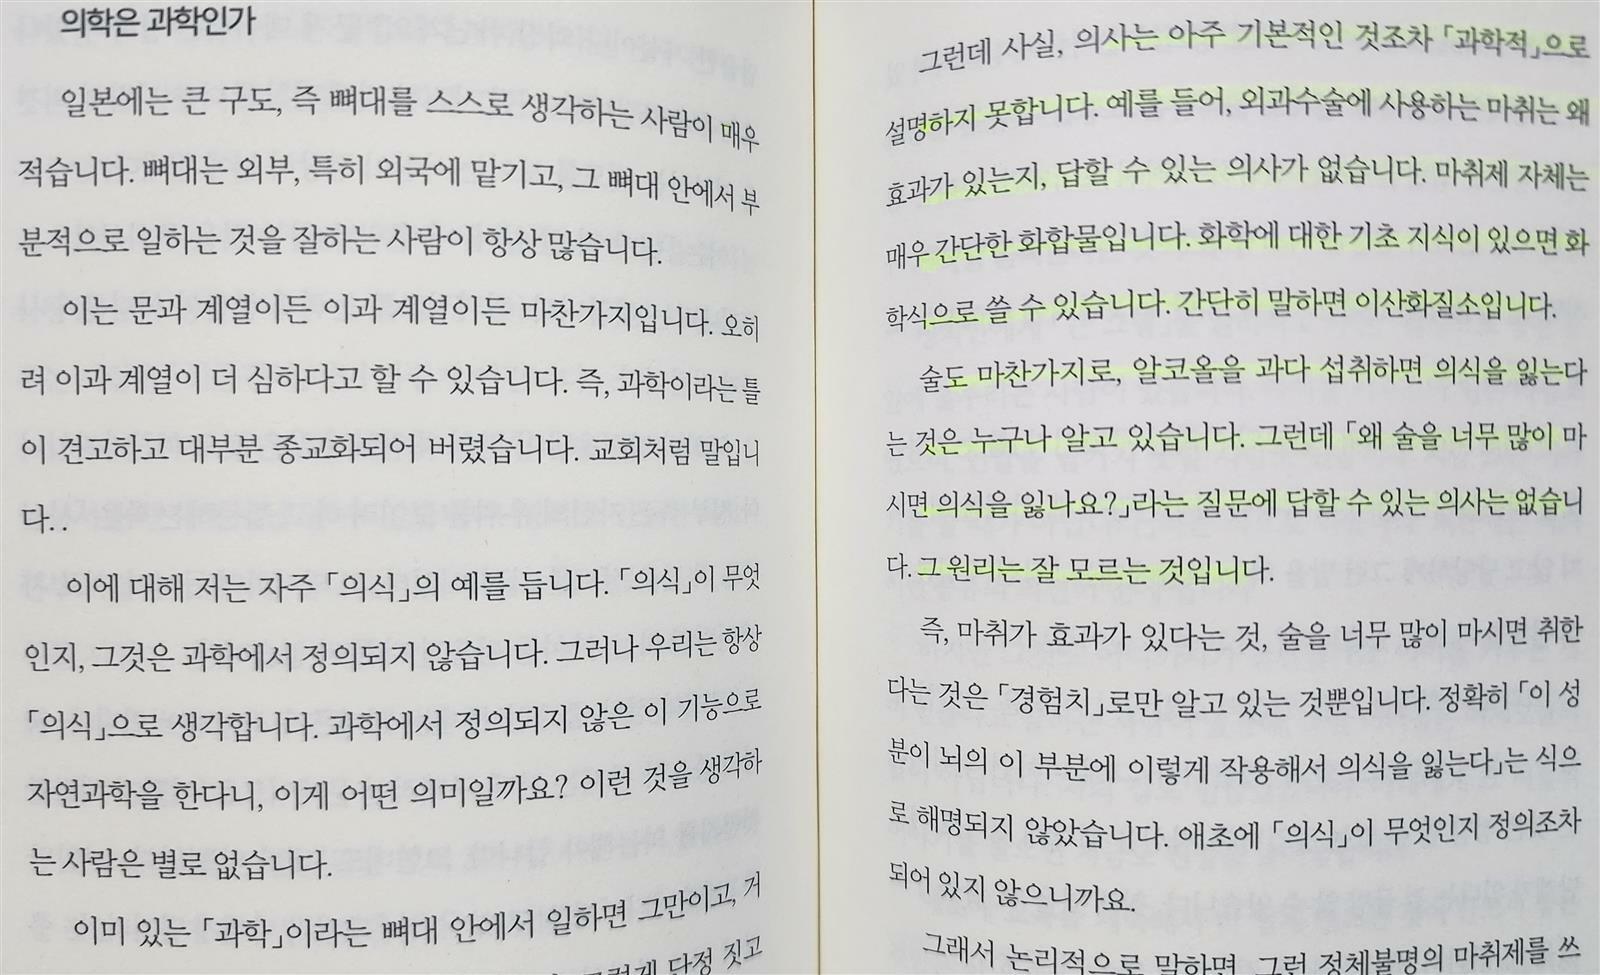 의학은 과학인가
일본에는 큰 구도, 즉 뼈대를 스스로 생각하는 사람이 매우
적습니다. 뼈대는 외부, 특히 외국에 맡기고, 그 뼈대 안에서 부
분적으로 일하는 것을 잘하는 사람이 항상 많습니다.
이는 문과 계열이든 이과 계열이든 마찬가지입니다. 오히
려 이과 계열이 더 심하다고 할 수 있습니다. 즉, 과학이라는 틀
이 견고하고 대부분 종교화되어 버렸습니다. 교회처럼 말입니
다..
이에 대해 저는 자주 「의식」의 예를 듭니다. 「의식」이 무엇
인지, 그것은 과학에서 정의되지 않습니다. 그러나 우리는 항상
「의식」으로 생각합니다. 과학에서 정의되지 않은 이 기능으로
자연과학을 한다니, 이게 어떤 의미일까요? 이런 것을 생각하
는 사람은 별로 없습니다.
이미 있는 「과학」이라는 뼈대 안에서 일하면 그만이고, 거
그렇게 단정 짓고
그런데 사실, 의사는 아주 기본적인 것조차 「과학적」으로
설명하지 못합니다. 예를 들어, 외과수술에 사용하는 마취는 왜
효과가 있는지, 답할 수 있는 의사가 없습니다. 마취제 자체는
매우 간단한 화합물입니다. 화학에 대한 기초 지식이 있으면 화
학식으로 쓸 수 있습니다. 간단히 말하면 이산화질소입니다.
술도 마찬가지로, 알코올을 과다 섭취하면 의식을 잃는다
는 것은 누구나 알고 있습니다. 그런데 「왜 술을 너무 많이 마
시면 의식을 잃나요?」라는 질문에 답할 수 있는 의사는 없습니
다. 그 원리는 잘 모르는 것입니다.
즉, 마취가 효과가 있다는 것, 술을 너무 많이 마시면 취한
다는 것은 「경험치」로만 알고 있는 것뿐입니다. 정확히 「이 성
분이 뇌의 이 부분에 이렇게 작용해서 의식을 잃는다」는 식으
로 해명되지 않았습니다. 애초에 「의식」이 무엇인지 정의조차
되어 있지 않으니까요.
그래서 논리적으로 말하면, 그런 정체불명의 마취제를 쓰